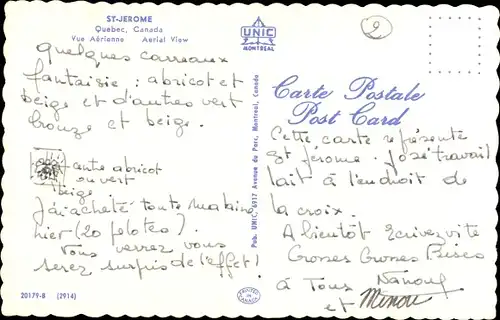 ST-JEROME
Quebec, Canada
Vue Aérienne Aerial View
UNIC
MONTREAL
2
quelques carreaux
fantaisie : abricot et
beige et d'autres vert
bronze et beige.
centre abricot
ou vert
beige
J'ai acheté toute ma laine
hier (20 pelotes).
Vous verrez vous
serez surpris de l'effet!
20179-B (2914)
Pub. UNIC, 6917 Avenue du Parc, Montreal, Canada
PRINTED IN CANADA
Carte Postale
Post Card
Cette carte représente
St Jerome. José travail
lait à l'endroit de
la croix.
A bientôt Ecrivez vite
Grosses Grosses Bises
à Tous Nanou
et Minou